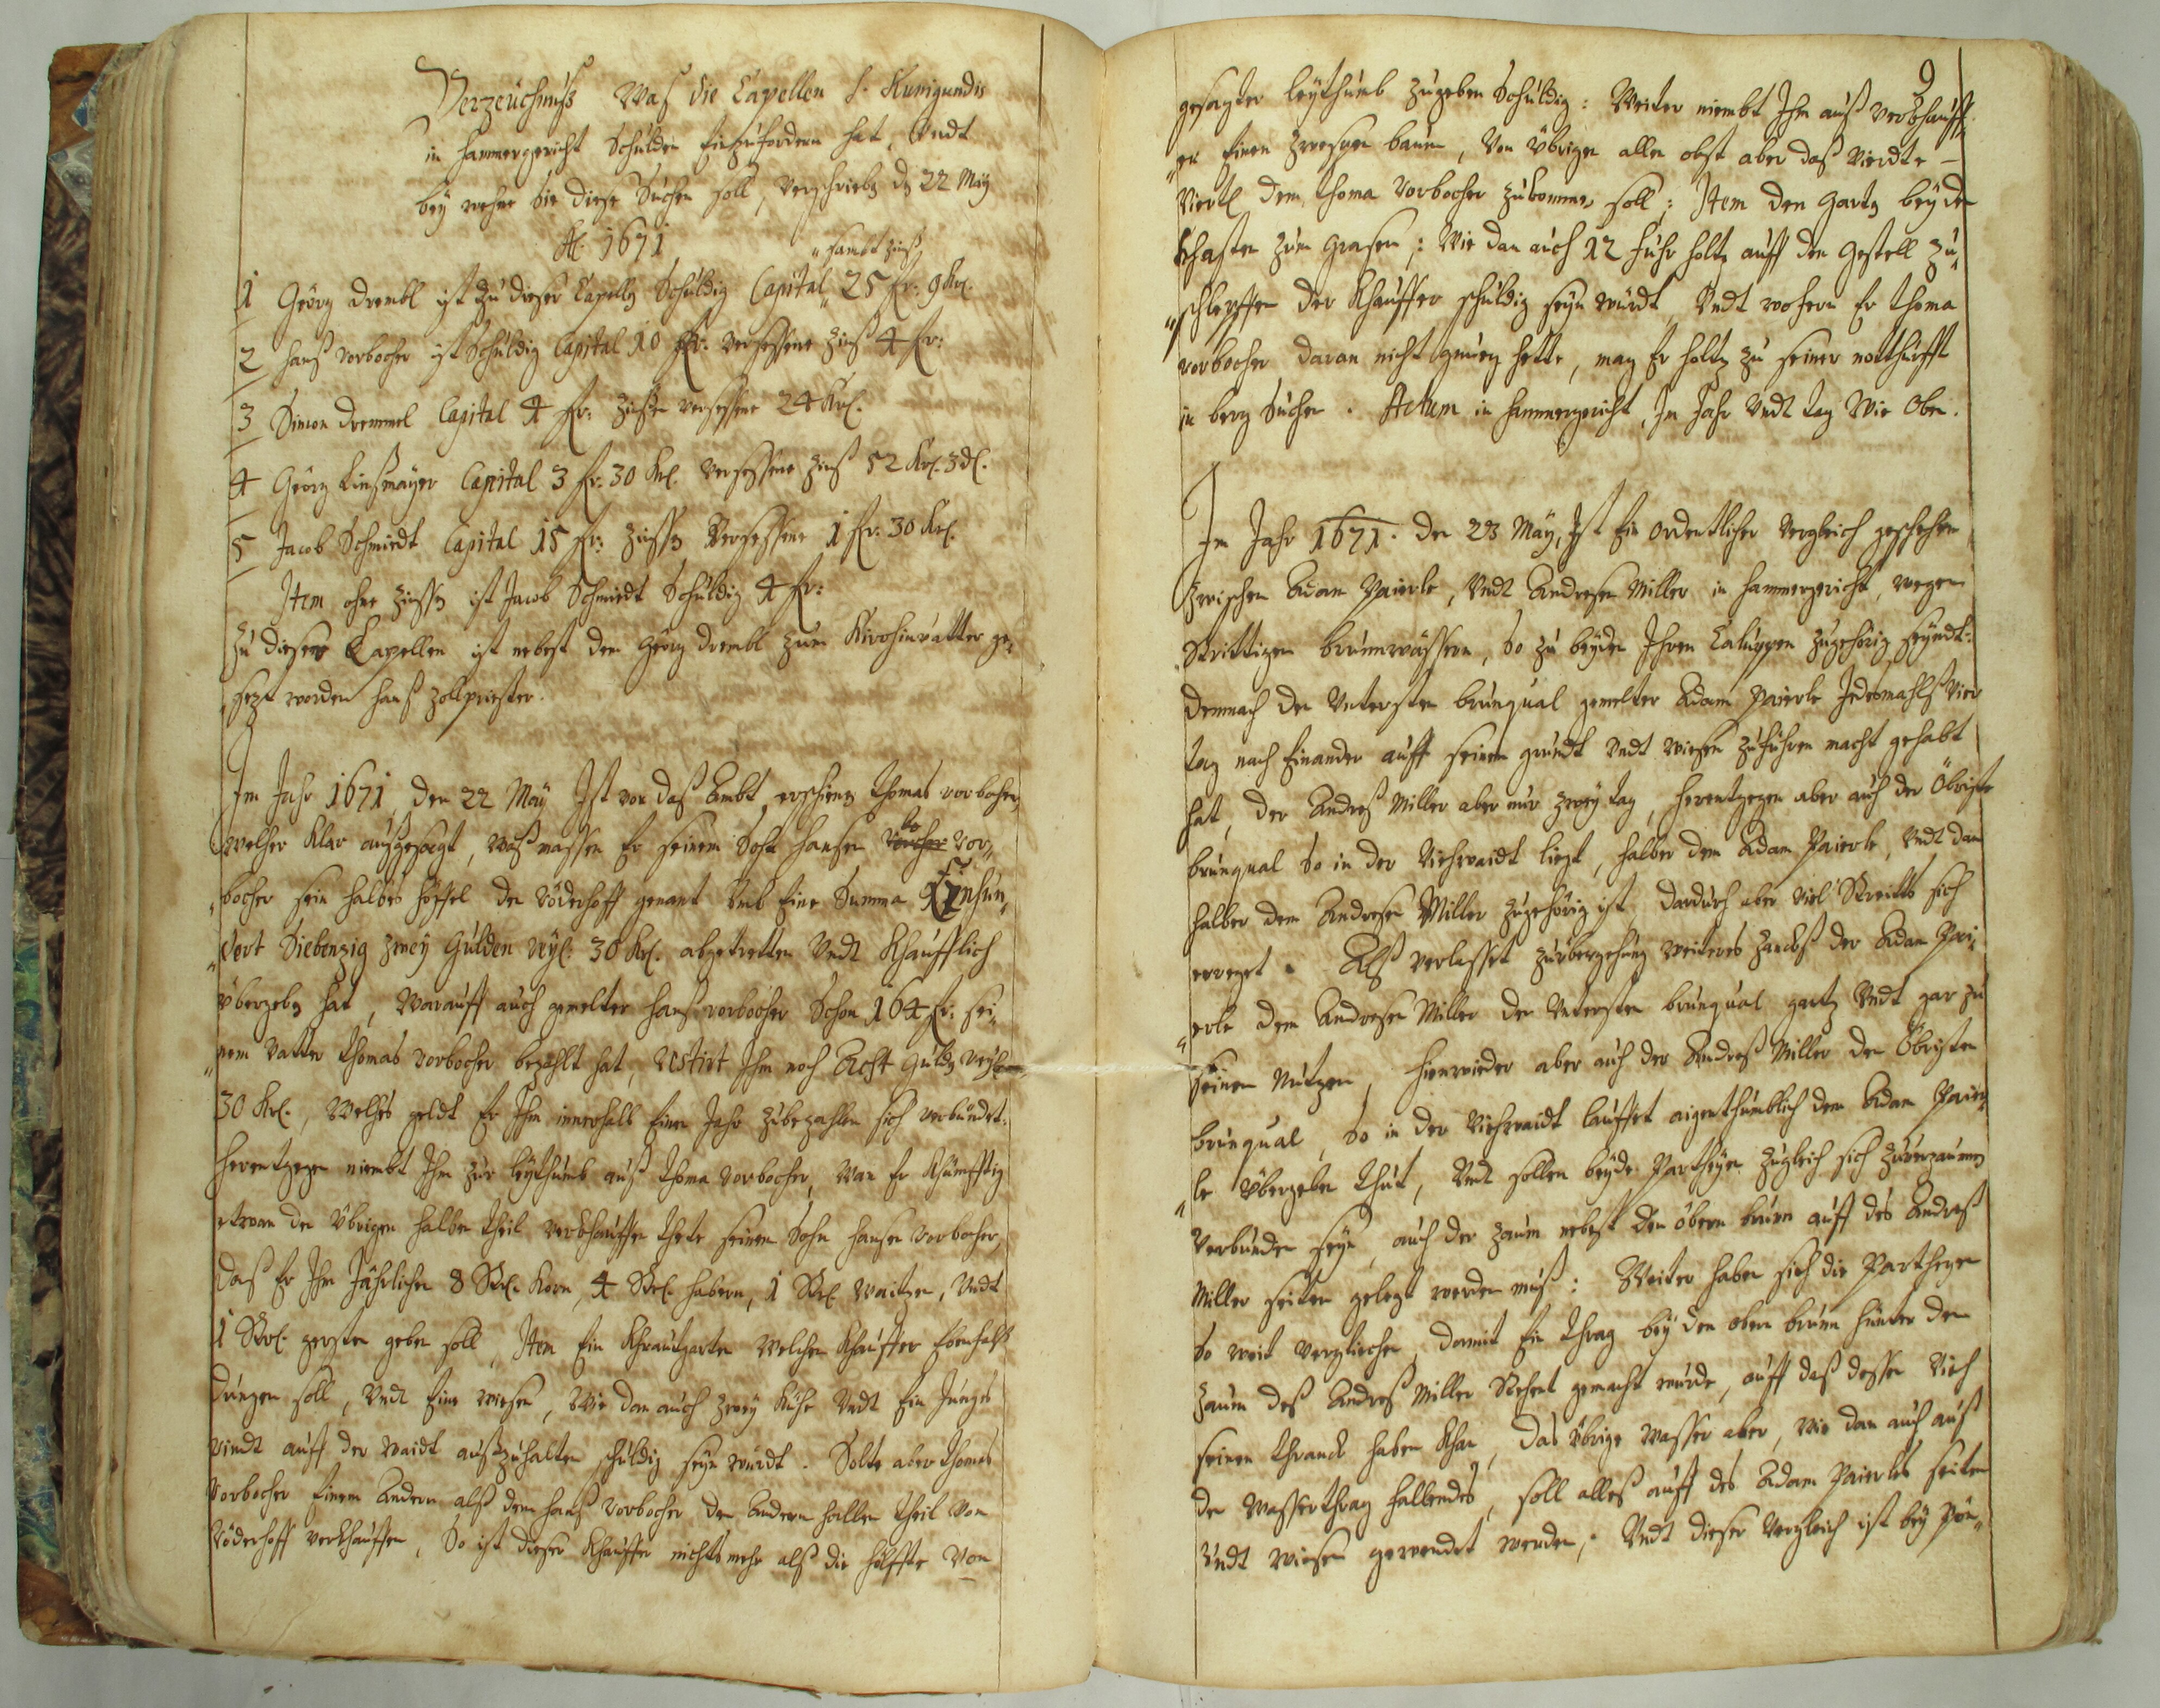 Verzeichnuß Waß die Capellen S. Kunigundis
in Hammergericht Schulden einzufordern hat, Undt
bey wehme sie diese Suchen soll, Verschrieben den 22 May
Ao. 1671
sambt Zinß
1 Geörg Drembl ist zu dieser Capelln Schuldig Capital 25 fr: 9 Krl.
2 Hanß Vorbocher ist Schuldig Capital 10 fr: Versessene Zinß 4 fr:
3 Simon Dremmel Capital 4 fr: Zinßen Versessene 24 Krl.
4 Geörg Linßmayer Capital 3 fr: 30 Krl. Versessene Zinß 52 Krl. 3 dl.
5 Jacob Schmiedt Capital 15 fr: Zinßen Versessene 1 fr: 30 Krl.
Item ohne Zinßen ist Jacob Schmiedt Schuldig 4 fr:
Zu dieser Capellen ist nebest dem Geörg Drembl zum Kirchinvatter ge-
sezt worden Hanß Zollpriester.
Im Jahr 1671 den 22 May Ist vor daß Ambt erschienen Thomas Vorbocher,
Welcher Klar außgesagt, waßmassen Er seinem Sohn Hansen Vor-
bocher sein halbes Höffel der Röderhoff genant Umb Eine Summa Einhun-
dert Siebenzig zwey Gulden 30 Krl. abgetretten Undt Khäufflich
übergeben hat, Warauff auch gemelter Hanß Vorbocher Schon 164 fr: sei-
nem Vatter Thomas Vorbocher bezahlt hat, Restirt Ihm noch Acht Gulden
30 Krl., Welches geldt Er Ihm innerhalb Einen Jahr zubezahlen sich verbündet.
Herentgegen niembt Ihm zur leythumb auß Thoma Vorbocher, Wan Er Khünfftig
etwan den Übrigen halben theil verkhauffen thete seinem Sohn Hansen Vorbocher,
Daß Er Ihm Jährlichen 8 Strl. Korn, 4 Strl. Habern, 1 Strl. Waitzen, Undt
1 Strl. gersten geben soll, Item Ein Khrautgarten Welchen Khauffer Ebenfalß
dungen soll, Undt Eine wiesen, Wie dan auch zwey Kühe Undt Ein Junges
Rindt auff der Waidt außzuhalten schuldig seyn würdt. Solte aber Thomas
Vorbocher Einem Andern alß dem Hanß Vorbocher den Andern halben theil von
Röderhoff verkhauffen, So ist dieser Khauffer nichts mehr alß die helffte Von
9
gesagter leythumb zugeben Schuldig: Weiter niembt Ihm auß verkhauff-
er Einen zwespen baum, Von Übrigen allen obst aber daß Vierdte
Viertl dem Thoma Vorbocher zukommen soll; Item den Garten beyden
Schafen zum Grasen: Wie dan auch 12 fuhr holtz auff den Gestell zu-
schleppen der Khauffer schuldig seyn würdt, Undt wofern Er Thoma
Vorbocher daran nicht genueg hette, mag Er holtz zu seiner notthurfft
in berg Suchen. Actum in Hammergericht, Im Jahr Undt tag Wie Oben.
Im Jahr 1671. den 23 May, Ist Ein Ordentlicher Vergleich geschehen,
Zwischen Adam Paierle, Undt Andresen Miller in Hammergericht, wegen
Strittigen brunwässern, So zu beyden Ihren Caluppen zugehörig seyndt:
Demnach den Untersten brunqual gemelter Adam Paierle Jedesmahlß Vier
tag nach Einander auff seinen grundt Undt wiesen zuführen macht gehabt
hat, der Andreß Miller aber nur zwey tag, herentgegen aber auch der Öbriste
brunqual So in der Viehwaidt liegt, halber dem Adam Paierle, Undt dan
halber dem Andresen Miller zugehörig ist, dardurch aber viel Streitts sich
erreget. Alß verlasset zu übergehung weiteres Zanckß der Adam Pai-
erle dem Andresen Miller den Untersten brunqual gantz Undt gar zu
seinen Nutzen, hierwieder aber auch der Andreß Miller den Öbristen
brunqual, So in der Viehwaidt lauffet aigenthümblich dem Adam Paier-
le Übergeben thut, Undt sollen beyde Partheyen zugleich sich zuverzaunen
Verbunden seyn, auch der Zaun nebest den obern brunn auff des Andreß
Miller seiten gelegt werden muß: Weiter haben sich die Partheyen
So weit verglichen, damit Ein thrag bey den obern brunn hinter dem
Zaun deß Andreß Miller Stehent gemacht würde, auff daß dessen Vieh
seinen thranck haben khan, das Übrige Wasser aber, wie dan auch auß
den Wasserthrag fallendes, soll alleß auff des Adam Paierles seiten
Undt wiesen gewendet werden; Undt dieser Vergleich ist bey Pön-